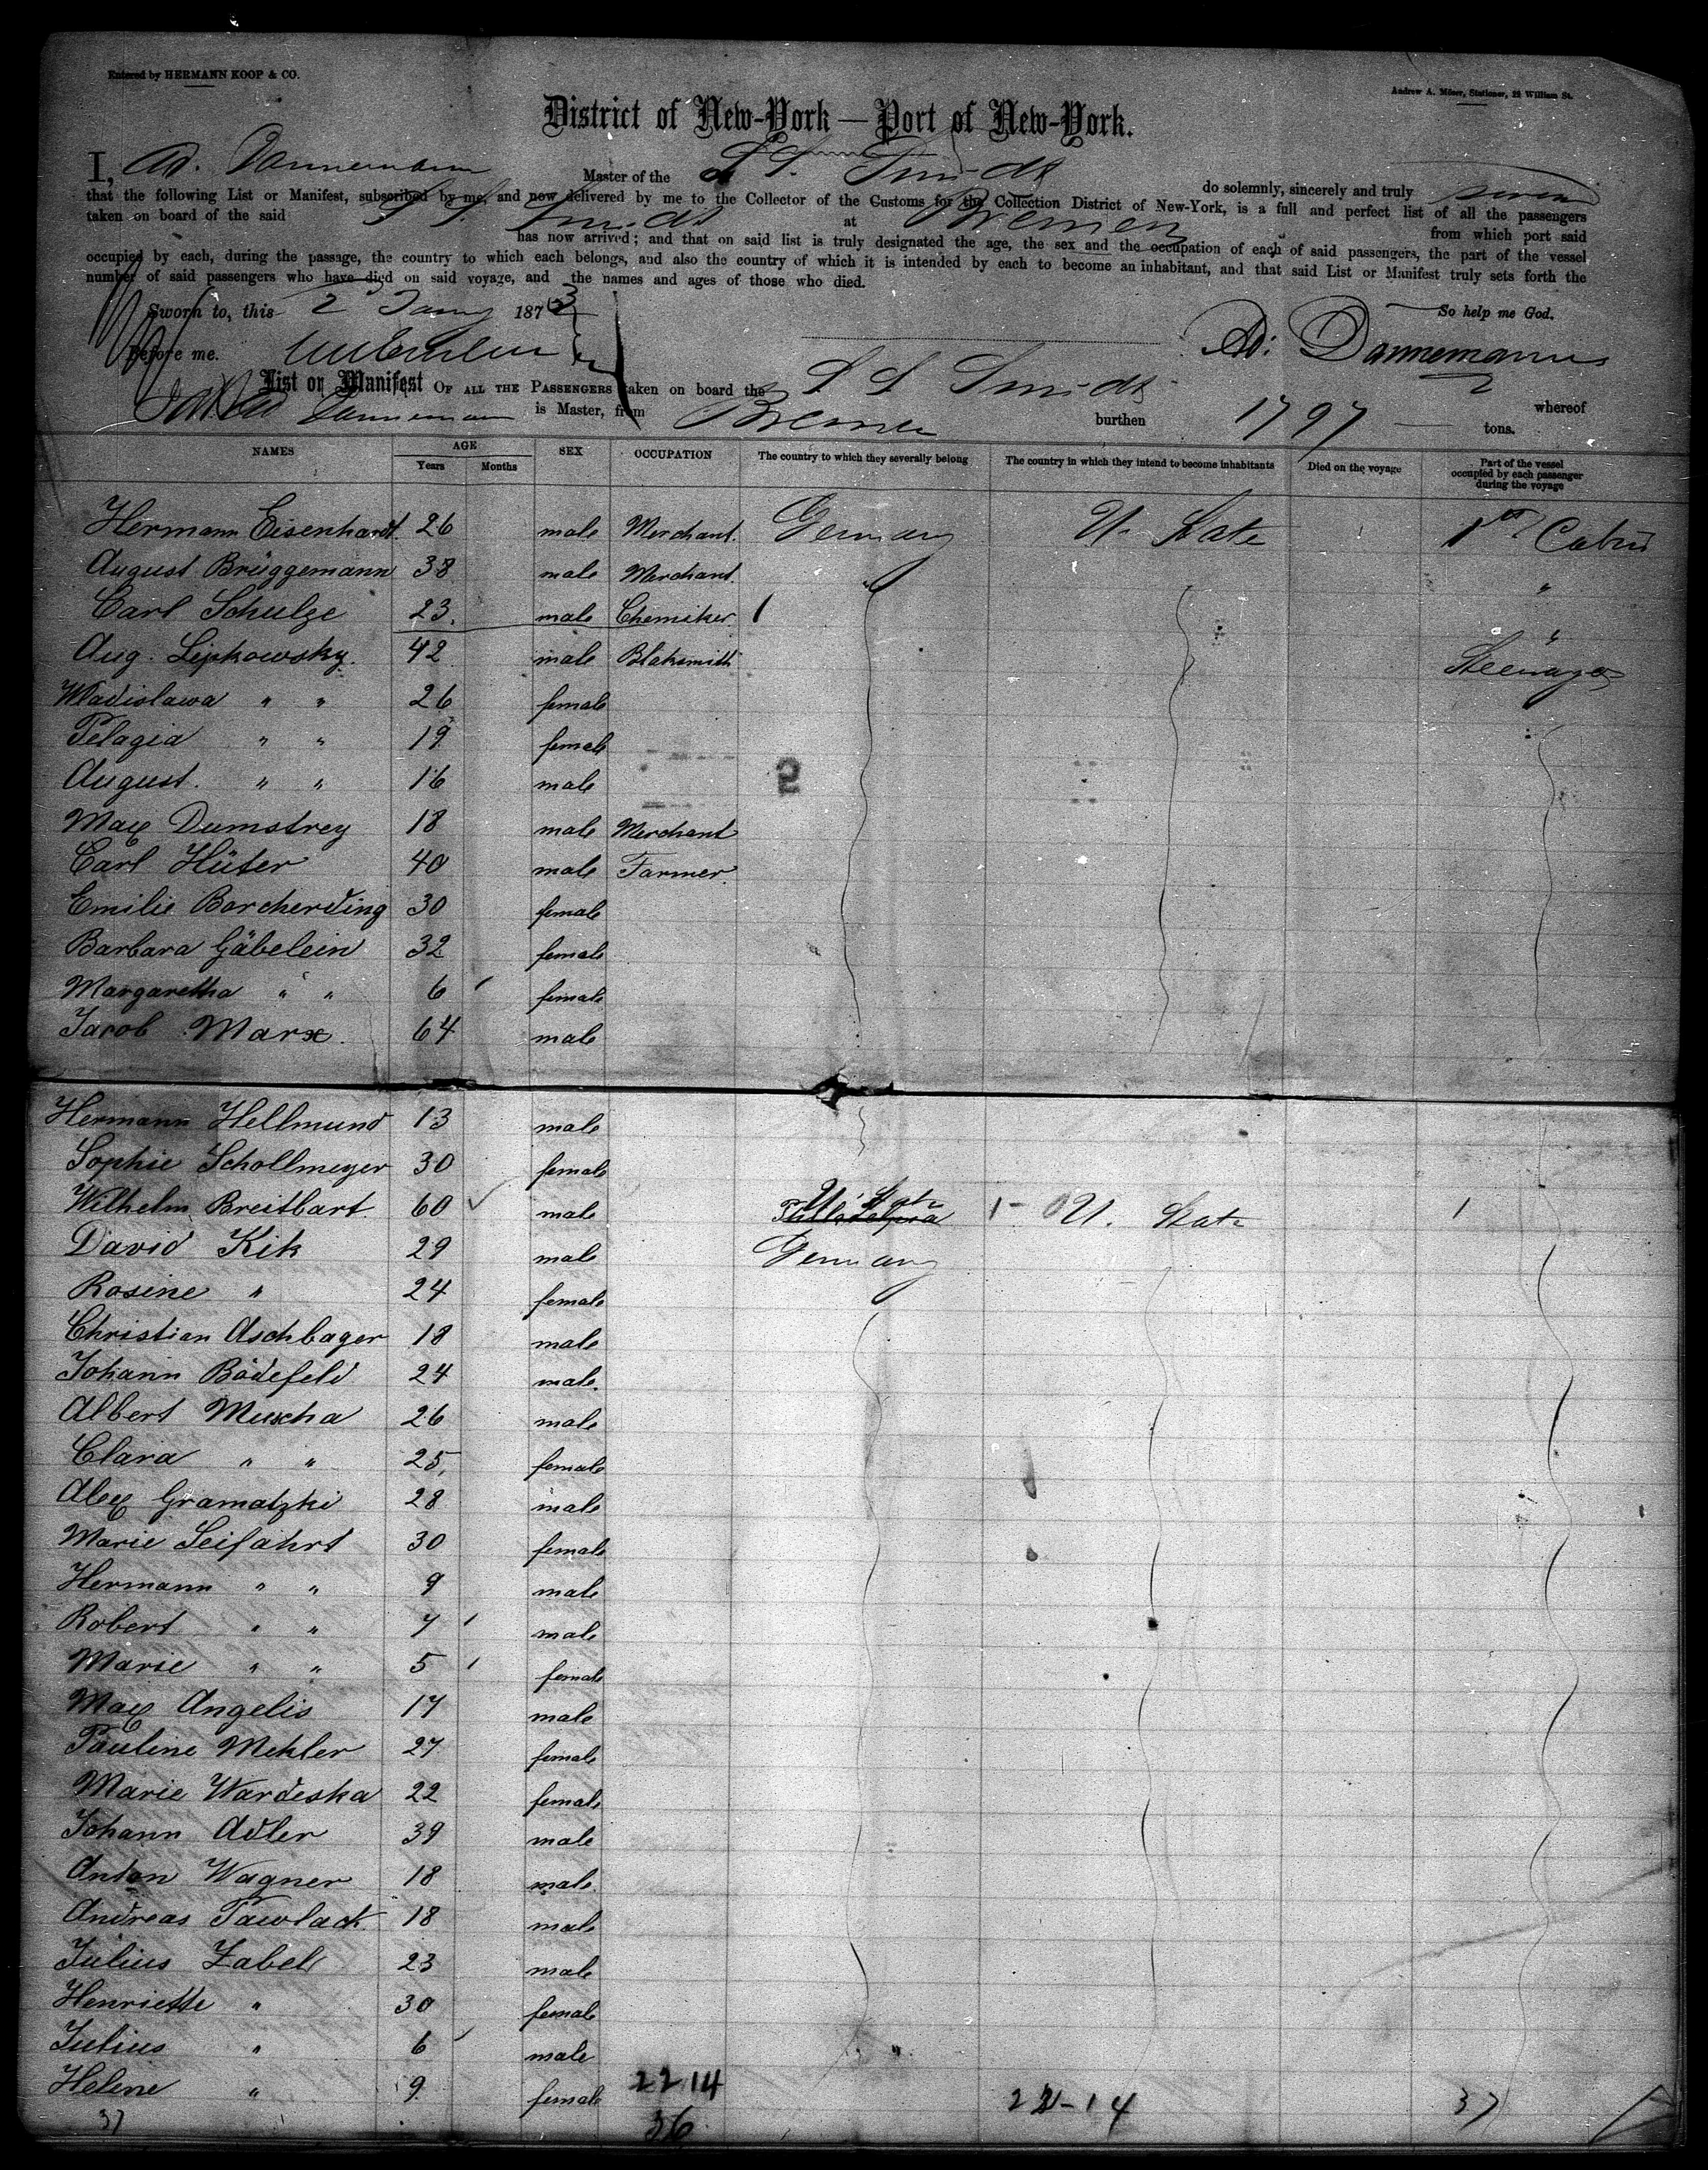 Entered by HERMANN KOOP & CO.
Andrew A. Möser, Stationer, 22 William St.
District of New-York—Port of New-York.
I, Ad. Dannemann Master of the S.S. Smidt do solemnly, sincerely and truly swear
that the following List or Manifest, subscribed by me, and now delivered by me to the Collector of the Customs for the Collection District of New-York, is a full and perfect list of all the passengers
taken on board of the said S.S. Smidt at Bremen from which port said
has now arrived; and that on said list is truly designated the age, the sex and the occupation of each of said passengers, the part of the vessel
occupied by each, during the passage, the country to which each belongs, and also the country of which it is intended by each to become an inhabitant, and that said List or Manifest truly sets forth the
number of said passengers who have died on said voyage, and the names and ages of those who died.
Sworn to, this 2 Janry 1873 So help me God.
Before me. Ad: Dannemann
List or Manifest OF ALL THE PASSENGERS taken on board the S S Smidt whereof
Dannemann is Master, from Bremen burthen 1797 tons.
NAMES AGE SEX OCCUPATION The country to which they severally belong The country in which they intend to become inhabitants Died on the voyage Part of the vessel occupied by each passenger during the voyage
Years Months
Hermann Eisenhardt. 26 male Merchant. Germany U. State 1st Cabin
August Brüggemann 38 male Merchant. "
Carl Schulze 23. male Chemiker. 1 "
Aug. Lipkowsky. 42 male Blaksmith Steerage
Wladislawa " " 26 female
Pelagia " " 19 female
August. " " 16 male 2
Max Dumstrey 18 male Merchant
Carl Hüter 40 male Farmer.
Emilie Borcherding 30 female
Barbara Gäbelein 32 female
Margaretha " " 6 female
Jacob Marx. 64 male
Hermann Hellmund 13 male
Sophie Schollmeyer 30 female
Wilhelm Breitbart 60 male Philadelpia U. State 1- U. State 1
David Kik 29 male Germany
Rosine " 24 female
Christian Aschbager 18 male
Johann Bödefeld 24 male.
Albert Muscha 26 male
Clara " " 25. female
Alex Gramatzki 28 male
Marie Seifahrt 30 female
Hermann " " 9 male
Robert " " 7 male
Marie " " 5 female
Max Angelis 17 male
Pauline Mehler 27 female
Marie Wardeska 22 female
Johann Adler 39 male
Anton Wagner 18 male.
Andreas Pawlack. 18 male
Julius Zabel 23 male
Henriette " 30 female
Julius " 6 male
Helene " 9 female 22 14 22-14 37
37 36